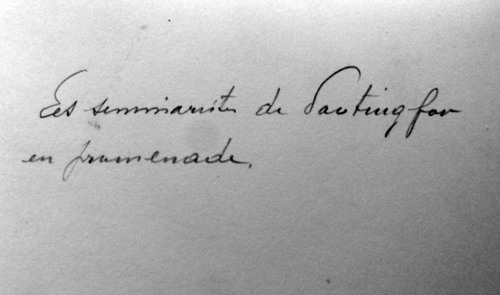 Les seminariste de Paotingfou
en promenade.